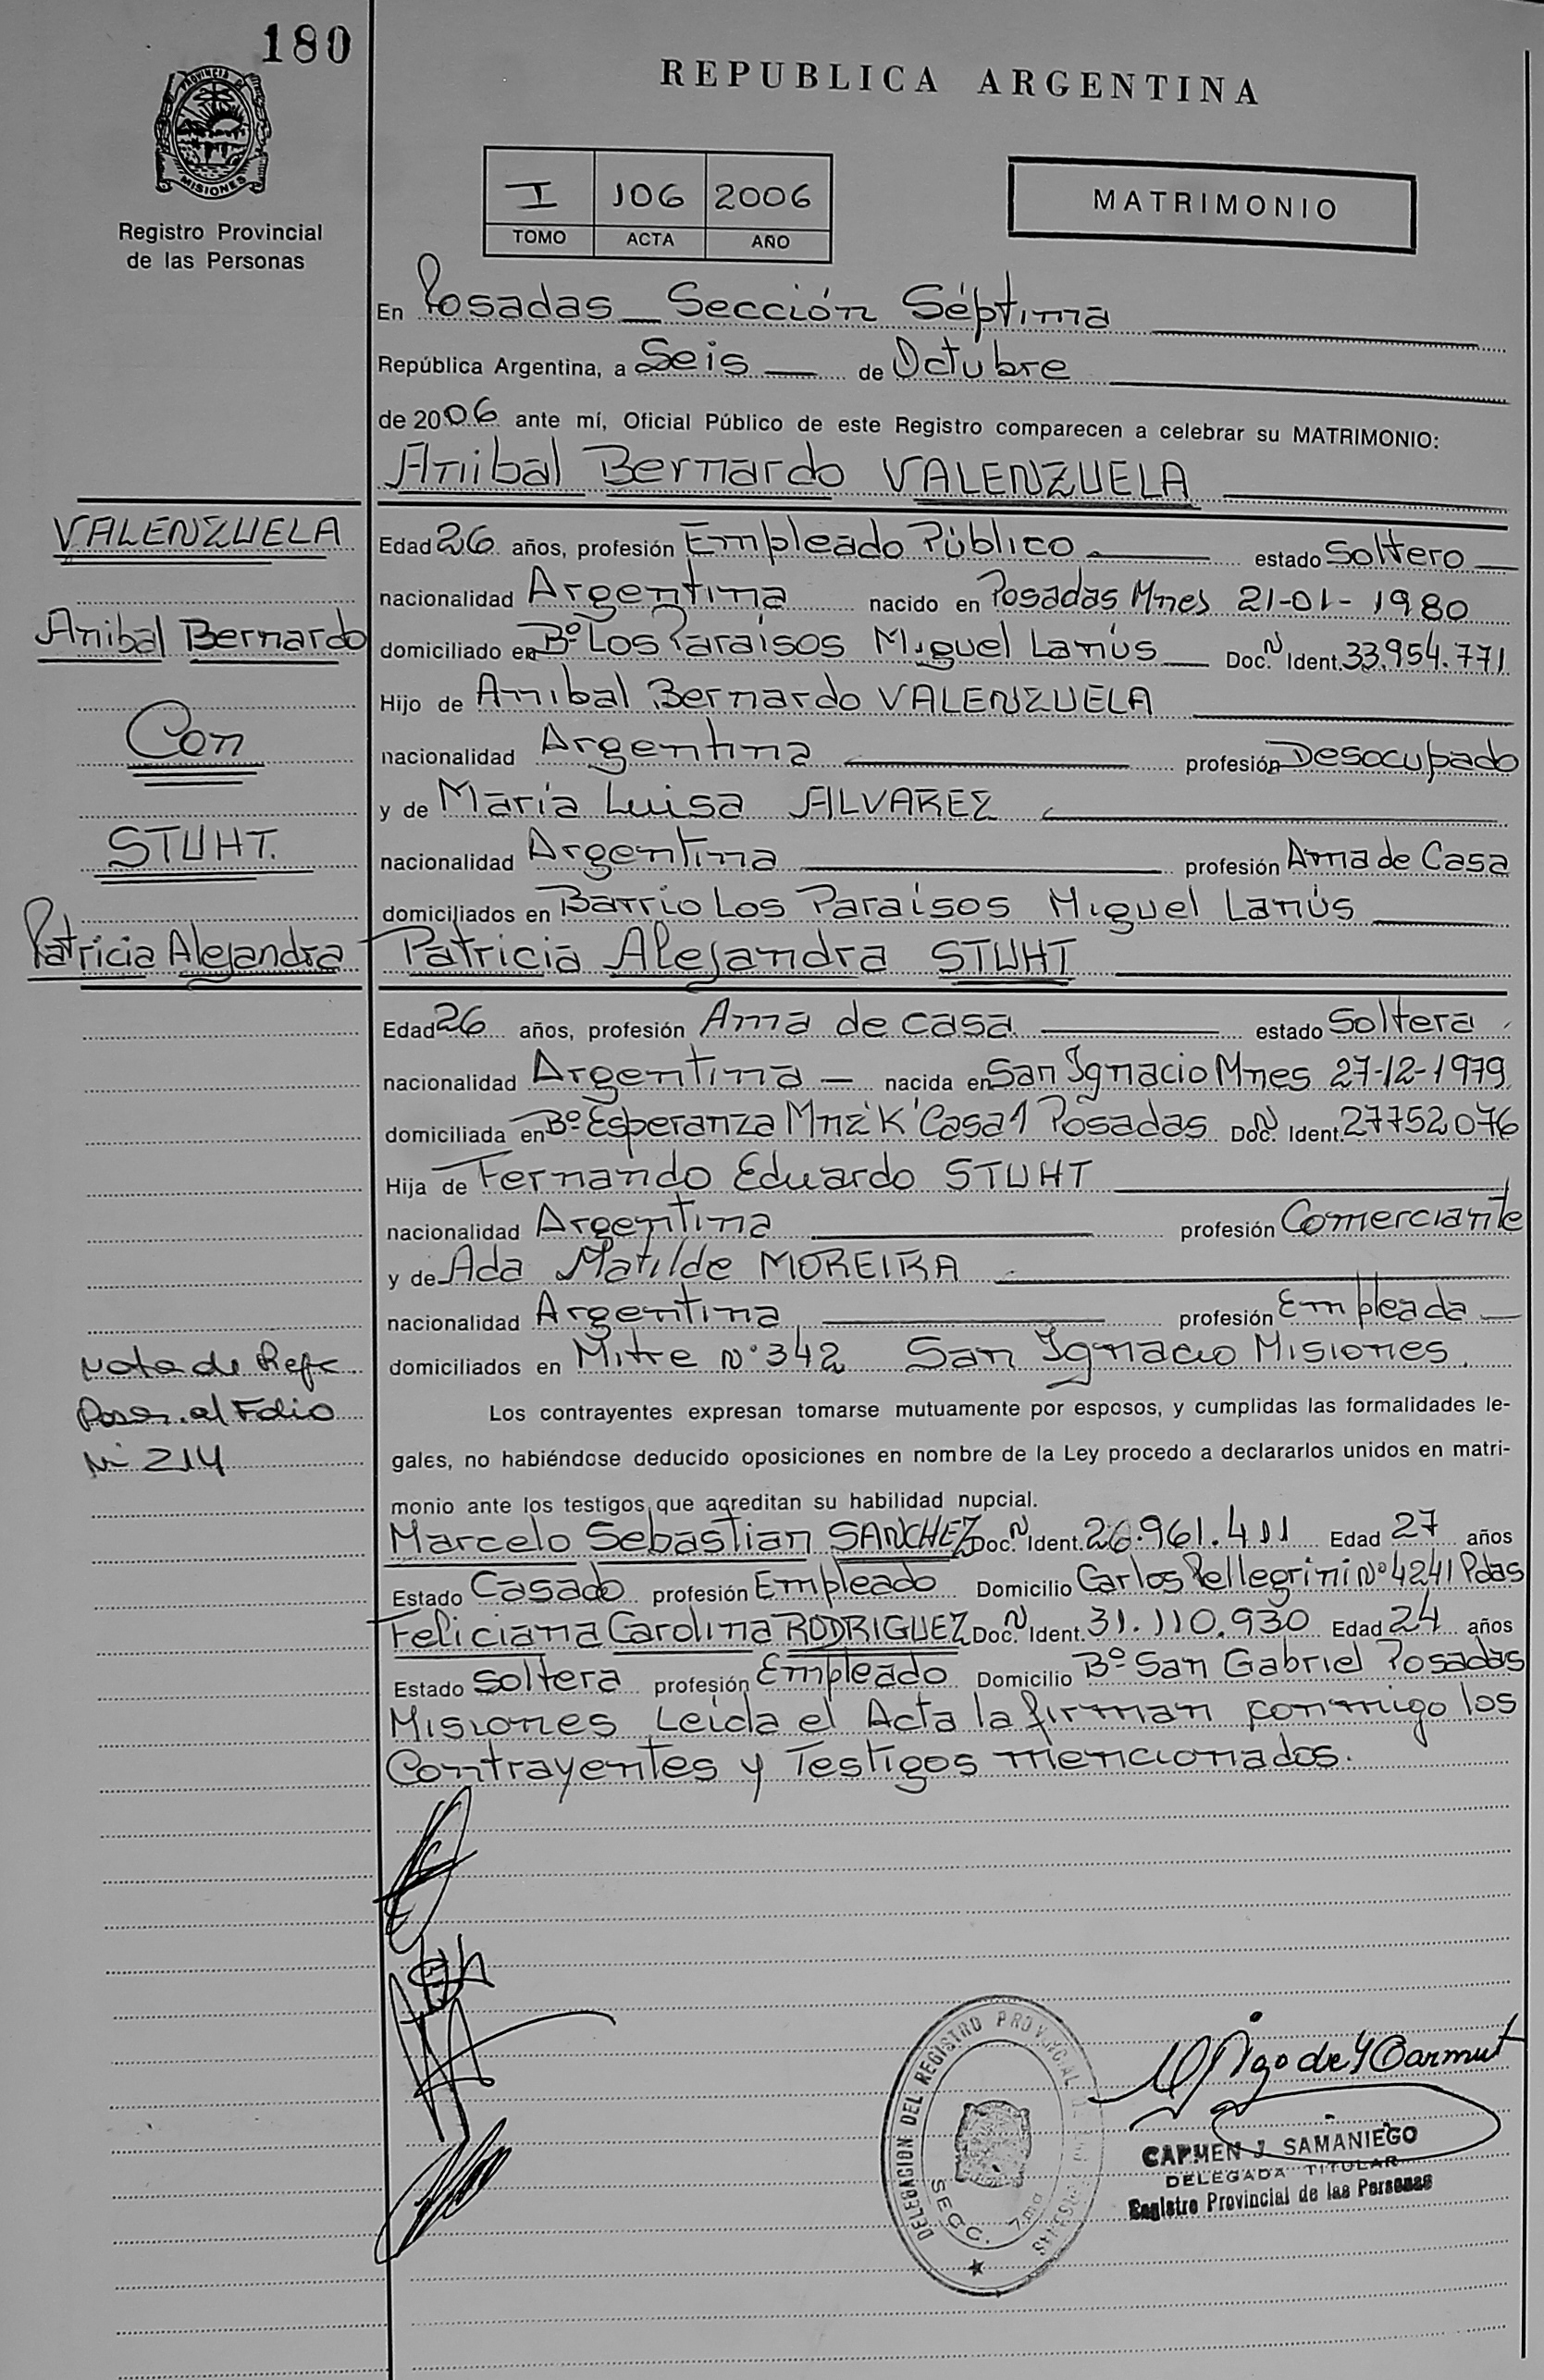 180
PROVINCIA DE
MISIONES
Registro Provincial
de las Personas
REPUBLICA ARGENTINA
I 106 2006
TOMO ACTA AÑO
MATRIMONIO
En Posadas Sección Séptima
República Argentina, a Seis de Octubre
de 2006 ante mí, Oficial Público de este Registro comparecen a celebrar su MATRIMONIO:
Anibal Bernardo VALENZUELA
VALENZUELA
Anibal Bernardo
Con
STUHT.
Patricia Alejandra
Edad 26 años, profesión Empleado Público estado Soltero
nacionalidad Argentina nacido en Posadas Mnes 21-01-1980
domiciliado en Bº Los Paraisos Miguel Lanús Doc. N Ident. 33.954.771
Hijo de Anibal Bernardo VALENZUELA
nacionalidad Argentina profesión Desocupado
y de María Luisa ALVAREZ
nacionalidad Argentina profesión Ama de Casa
domiciliados en Barrio Los Paraísos Miguel Lanús
Patricia Alejandra STUHT
Edad 26 años, profesión Ama de casa estado Soltera
nacionalidad Argentina nacida en San Ignacio Mnes 27-12-1979
domiciliada en Bº Esperanza Mnz 'K' Casa 1 Posadas Doc. N Ident. 27752.076
Hija de Fernando Eduardo STUHT
nacionalidad Argentina profesión Comerciante
y de Ada Matilde MOREIRA
nacionalidad Argentina profesión Empleada
domiciliados en Mitre Nº 342 San Ignacio Misiones
Nota de Refe
Pasar al Folio
Nº 214
Los contrayentes expresan tomarse mutuamente por esposos, y cumplidas las formalidades le-
gales, no habiéndose deducido oposiciones en nombre de la Ley procedo a declararlos unidos en matri-
monio ante los testigos que acreditan su habilidad nupcial.
Marcelo Sebastian SANCHEZ Doc. N Ident. 26.961.411 Edad 27 años
Estado Casado profesión Empleado Domicilio Carlos Pellegrini Nº 4241 Pdas
Feliciana Carolina RODRIGUEZ Doc. N Ident. 31.110.930 Edad 24 años
Estado Soltera profesión Empleado Domicilio Bº San Gabriel Posadas
Misiones Leida el Acta la firman conmigo los
Contrayentes y Testigos mencionados.
DELEGACION DEL REGISTRO PROVINCIAL
SECC. 7ma
CARMEN J. SAMANIEGO
DELEGADA TITULAR
Registro Provincial de las Personas